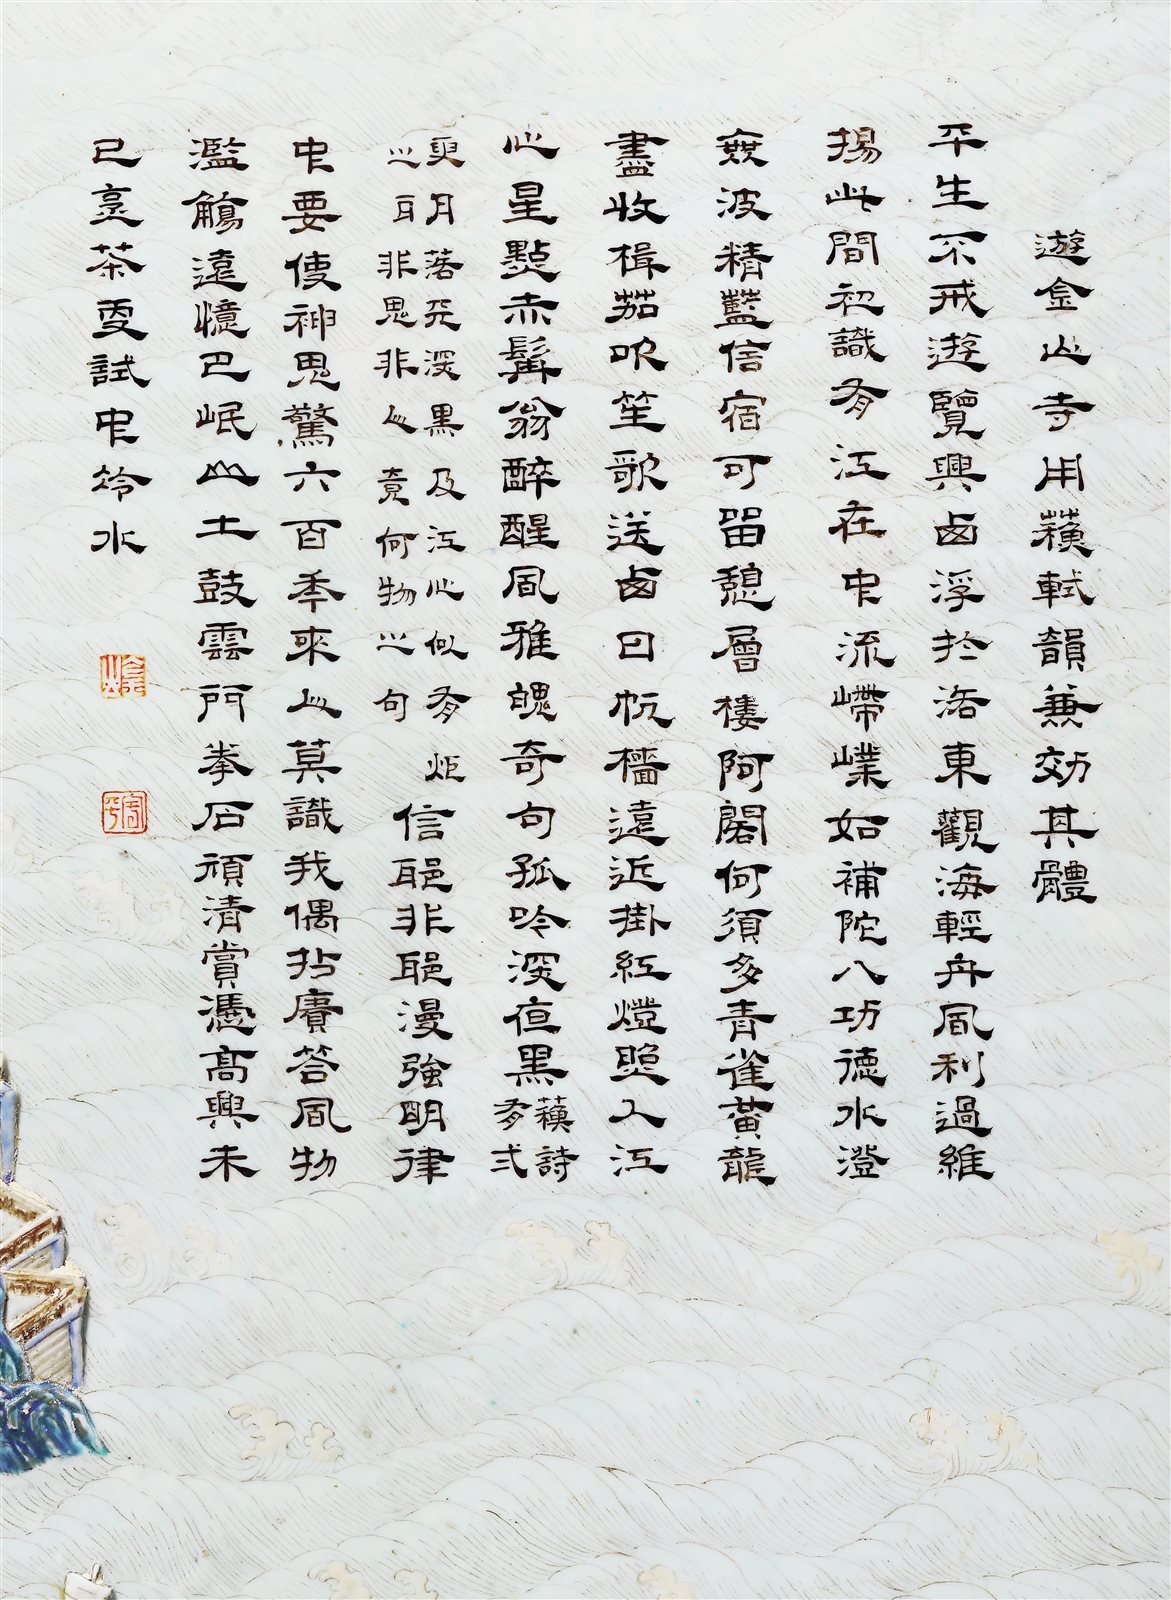 遊金山寺用蘓軾韻兼効其體
平生不戒遊覽興西浮於洛東觀海輕舟風利過維
揚此間初識有江在中流嵽嵲如補陀八功德水澄
無波精藍信宿可留憩層樓阿閣何須多青雀黃龍
盡收楫茄吹笙歌送西日帆檣遠近掛紅燈照入江
心星點赤髯翁醉醒風雅魄奇句孤吟深夜黑
蘓詩有弍
更月落天深黑及江心似有炬
之耳非鬼非人竟何物之句
信耶非耶漫強明律
中要使神鬼驚六百年來人莫識我偶拈賡答風物
濫觴遠憶巴岷山土鼓雲門拳石頑清賞憑高興未
已烹茶更試中泠水